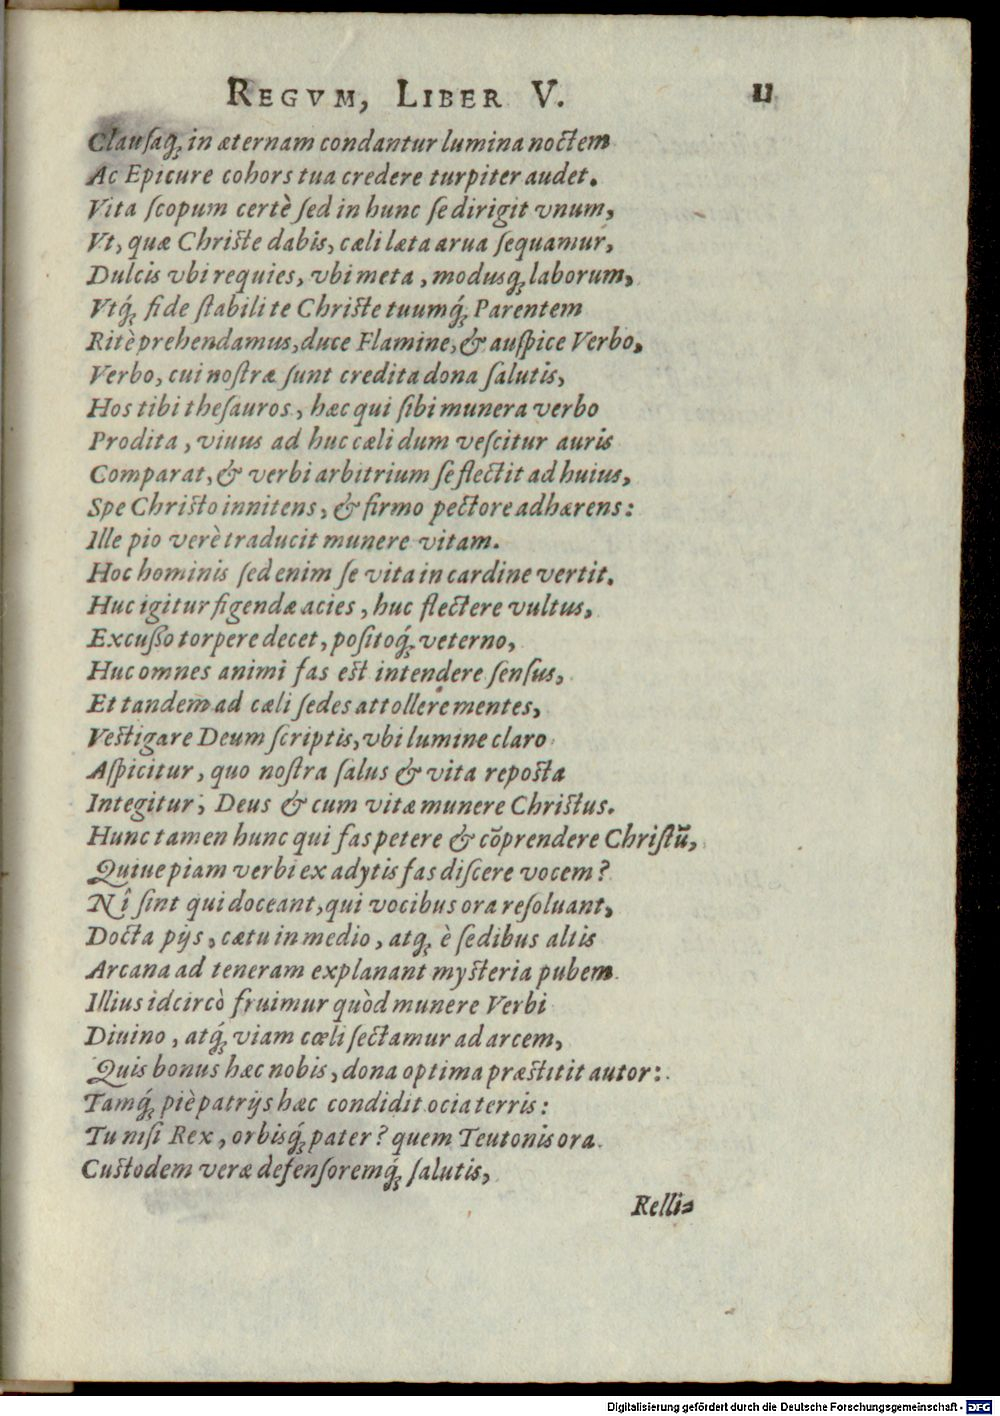 REGVM, LIBER V. 11
Clauſaq́ꝫ in æternam condantur lumina noctem
Ac Epicure cohors tua credere turpiter audet.
Vita ſcopum certè ſed in hunc ſe dirigit vnum,
Vt, quæ Chriſte dabis, cæli læta arua ſequamur,
Dulcis vbi requies, vbi meta, modusqꝫ laborum,
Vtq́ꝫ fide ſtabili te Chriſte tuumq́ꝫ Parentem
Ritè prehendamus, duce Flamine, & auſpice Verbo,
Verbo, cui noſtræ ſunt credita dona ſalutis,
Hos tibi theſauros, hæc qui ſibi munera verbo
Prodita, viuus ad huc cæli dum veſcitur auris
Comparat, & verbi arbitrium ſe flectit ad huius,
Spe Chriſto innitens, & firmo pectore adhærens:
Ille pio verè traducit munere vitam.
Hoc hominis ſed enim ſe vita in cardine vertit.
Huc igitur figendæ acies, huc flectere vultus,
Excuſſo torpere decet, poſitoq́ꝫ veterno,
Huc omnes animi fas eſt intendere ſenſus,
Et tandem ad cæli ſedes attollere mentes,
Veſtigare Deum ſcriptis, vbi lumine claro
Aſpicitur, quo noſtra ſalus & vita repoſta
Integitur; Deus & cum vitæ munere Chriſtus.
Hunc tamen hunc qui fas petere & cõprendere Chriſtũ,
Quiue piam verbi ex adytis fas diſcere vocem?
Nî ſint qui doceant, qui vocibus ora reſoluant,
Docta pijs, cætu in medio, atqꝫ è ſedibus altis
Arcana ad teneram explanant myſteria pubem
Illius idcircò fruimur quòd munere Verbi
Diuino, atq́ꝫ viam cœli ſectamur ad arcem,
Quis bonus hæc nobis, dona optima præſtitit autor:
Tamq́ꝫ piè patrijs hæc condidit ocia terris:
Tu niſi Rex, orbisq́ꝫ pater? quem Teutonis ora
Cuſtodem veræ defenſoremq́ꝫ ſalutis,
Relli⸗
Digitalisierung gefördert durch die Deutsche Forschungsgemeinschaft - DFG